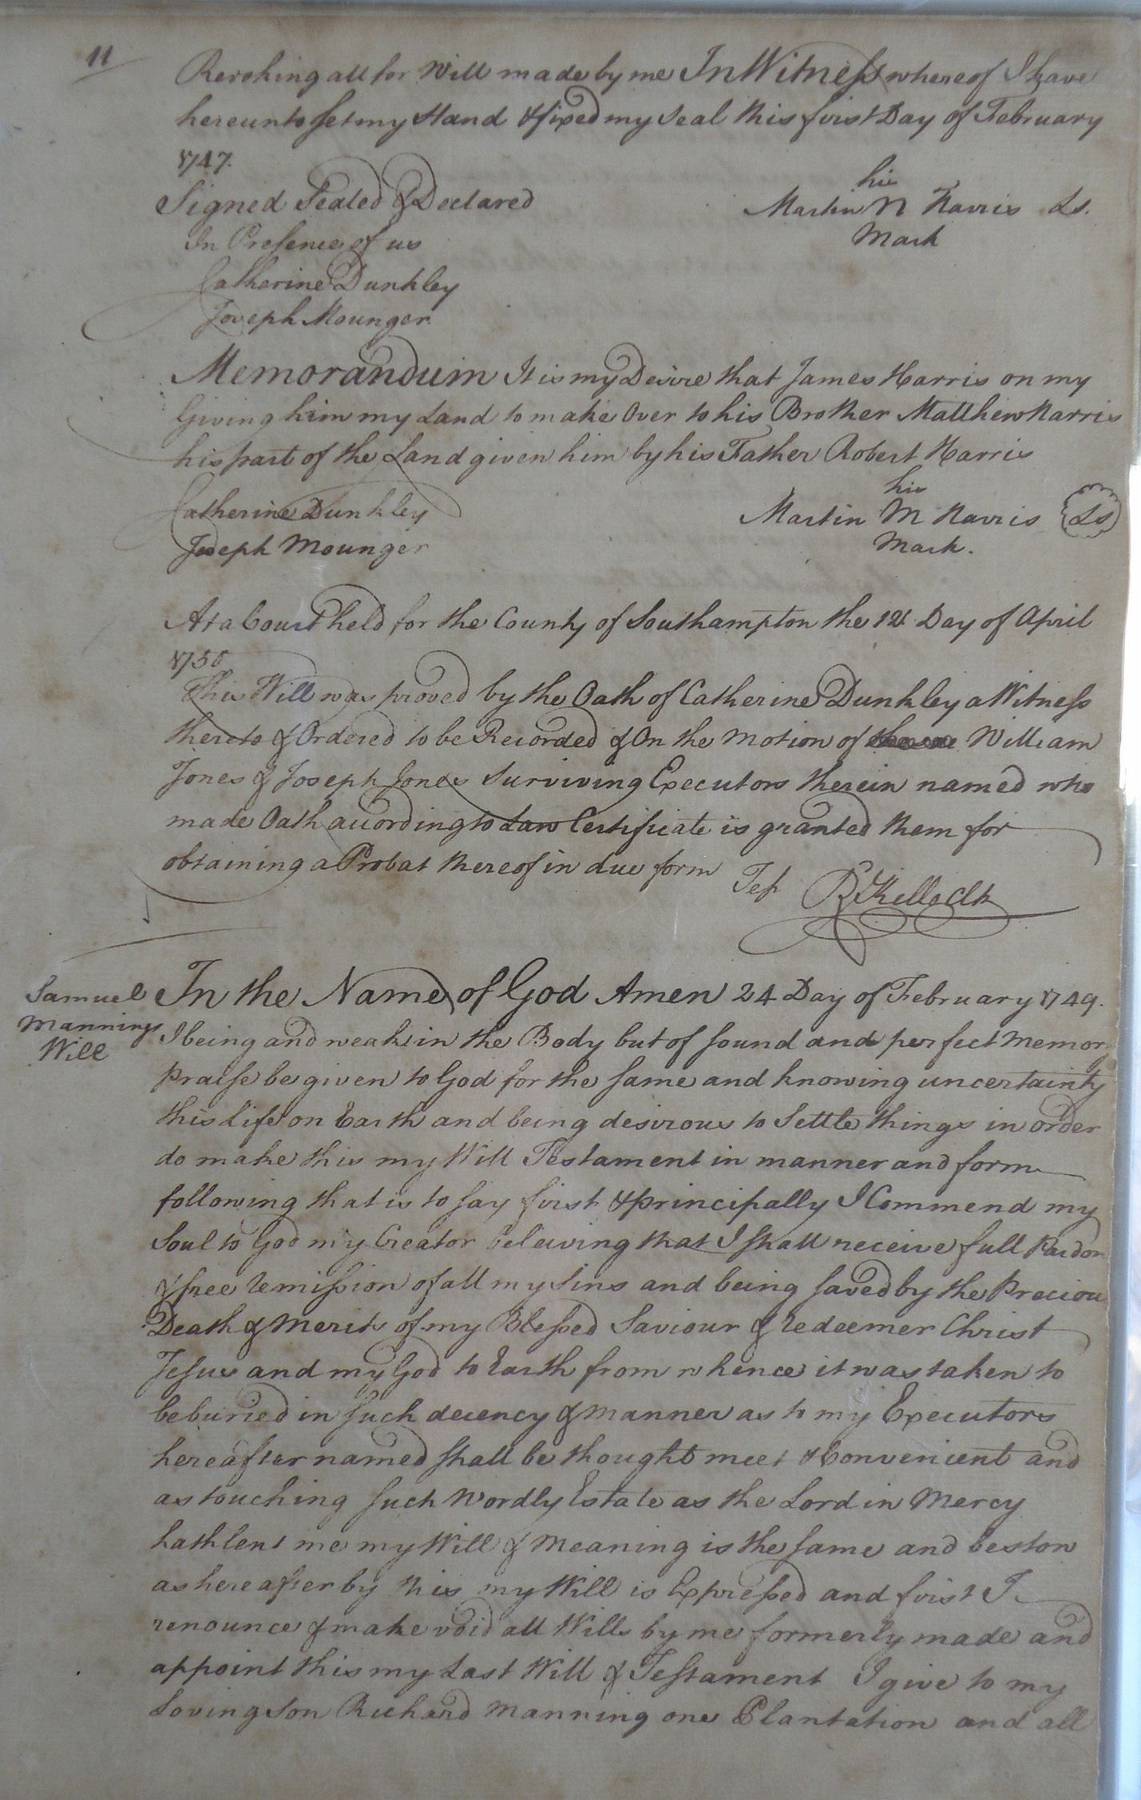 11
Revoking all for Will made by me In Witness whereof I have
hereunto set my Hand & fixed my Seal this first Day of February
1747.
Signed Sealed & Declared
his
Martin M Harris Ls.
Mark
In Presence of us
Catherine Dunkley
Joseph Mounger
Memorandum It is my Desire that James Harris on my
Giving him my Land to make Over to his Brother Matthew Harris
his part of the Land given him by his Father Robert Harris
his
Catherine Dunkley
Martin M Harris Ls
Joseph Mounger
Mark.
At a Court held for the County of Southampton the 12 Day of April
1750
This Will was proved by the Oath of Catherine Dunkley a Witness
thereto & Ordered to be Recorded & On the Motion of William
Jones & Joseph Jones Surviving Executors therein named who
made Oath according to Law Certificate is granted them for
obtaining a Probat thereof in due form
Test R Kello Clk
Samuel
Mannings
Will
In the Name of God Amen 24 Day of February 1749.
I being and weak in the Body but of sound and perfect Memor
Praise be given to God for the same and knowing uncertainty
this Life on Earth and being desirous to Settle things in order
do make this my Will Testament in manner and form
following that is to say first & principally I Commend my
Soul to God my Creator beleiving that I shall receive full Pardon
& free remission of all my Sins and being saved by the Preciou
Death & Merits of my Blessed Saviour & redeemer Christ
Jesus and my God to Earth from whence it was taken to
be buried in such decency & manner as to my Executors
hereafter named shall be thought meet & Convenient and
as touching such Wordly Estate as the Lord in Mercy
hath lent me my Will & Meaning is the same and bestow
as hereafter by this my Will is Expressed and first I
renounce & make void all Wills by me formerly made and
appoint this my Last Will & Testament I give to my
Loving Son Richard Manning one Plantation and all